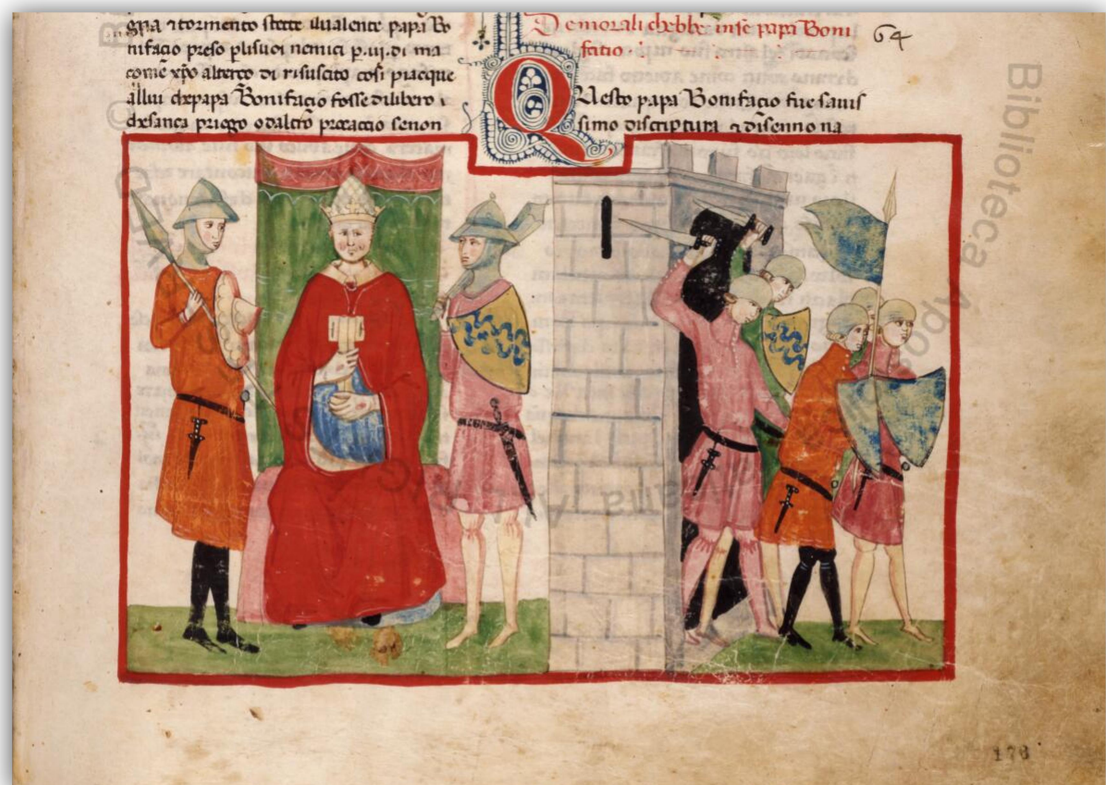 gna ⁊ tormento stette il ualente papa Bo
nifacio preso p li suoi nemici p .iij. di ma
come xpo al terço di risuscito cosi piacque
allui che papa Bonifacio fosse dilibero ⁊
che sança priego o daltro procaccio senon
De morali chebbe in se papa Boni
fatio
64
Questo papa Bonifacio fue sauis
simo di scriptura ⁊ di senno na
Biblioteca
176